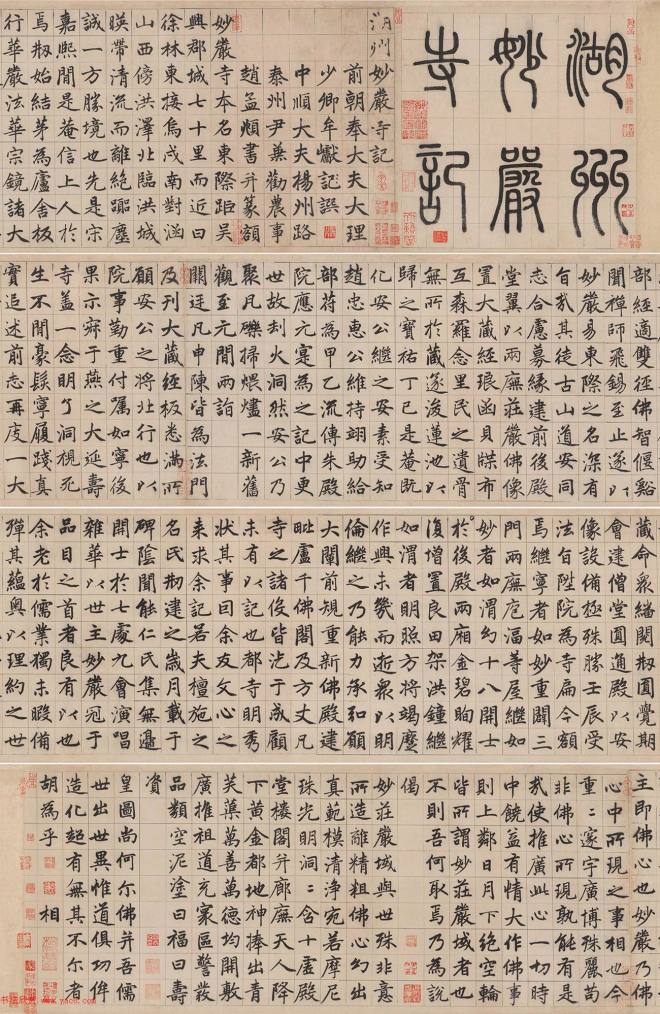 湖州
妙嚴
寺記
湖州妙嚴寺記
前朝奉大夫大理
少卿牟巘譔
中順大夫揚州路
泰州尹兼勸農事
趙孟頫書并篆額
妙嚴寺本名東際距吳
興郡城七十里而近曰
徐林東接烏戍南對涵
山西傍洪澤北臨洪城
暎帶清流而離絕囂塵
誠一方勝境也先是宋
嘉熙間是菴信上人於
焉剏始結茅為廬舍板
行華嚴法華宗鏡諸大
部經適雙徑佛智偃谿
聞禪師飛錫至止遂以
妙嚴易東際之名深有
旨哉其徒古山道安同
志合慮募緣建前後殿
堂翼以兩廡莊嚴佛像
置大藏經琅函貝牒布
互森羅念里民之遺骨
無所於藏遂浚蓮池以
歸之寶祐丁巳是菴既
化安公繼之安素受知
趙忠惠公維持翊助給
部符為甲乙流傳朱殿
院應元寔為之記中更
世故刦火洞然安公乃
聚凡礫掃煨燼一新舊
觀至元間兩詣
闕廷凡申陳皆為法門
及刊大藏經板悉滿所
願安公之將北行也以
院事勤重付囑如寧後
果示寂于燕之大延壽
寺蓋一念明了洞視死
生不間豪髮寧履踐真
實追述前志再庋一大
藏命衆繙閱剏圓覺期
會建僧堂圓通殿以安
像設備極殊勝壬辰受
法旨陞院為寺扁今額
焉繼寧者如妙重闢三
門兩廡庖湢等屋繼如
妙者如渭幻十八開士
於後殿兩廂金碧眴耀
復增置良田架洪鐘繼
如渭者明照方將竭麼
作興未幾而逝衆以明
倫繼之乃能力承弘願
大闡前規重新佛殿建
毗盧千佛閣及方丈凡
寺之諸役皆汔于成顧
未有以記也都寺明秀
狀其事囙余友文心之
來求余記若夫檀施之
名氏剏建之歲月載于
碑陰聞能仁氏集無邊
開士於七處九會演唱
雜華以世主妙嚴冠于
品目之首者良有以也
余老於儒業獨未暇備
殫其蘊奥以理約之世
主即佛心也妙嚴乃佛
心中所現之事相也今
重〻家宇廣博殊麗苟
非佛心所現孰能有是
哉使推廣此心一切時
中饒益有情大作佛事
則上鄰日月下絕空輪
皆所謂妙莊嚴域者也
不則吾何取焉乃為說
偈
妙莊嚴域與世殊非意
所造離精粗佛心幻出
真範模清淨宛若摩尼
珠光明洞〻含十虛殿
堂樓閣并廊廡天人降
下黃金都地神捧出青
芙蕖萬善萬德均開敷
廣推祖道充家區警發
品類空泥塗曰福曰壽
資
皇圖尚何尔佛并吾儒
世出世異惟道俱功侔
造化超有無其不尔者
胡為乎 相